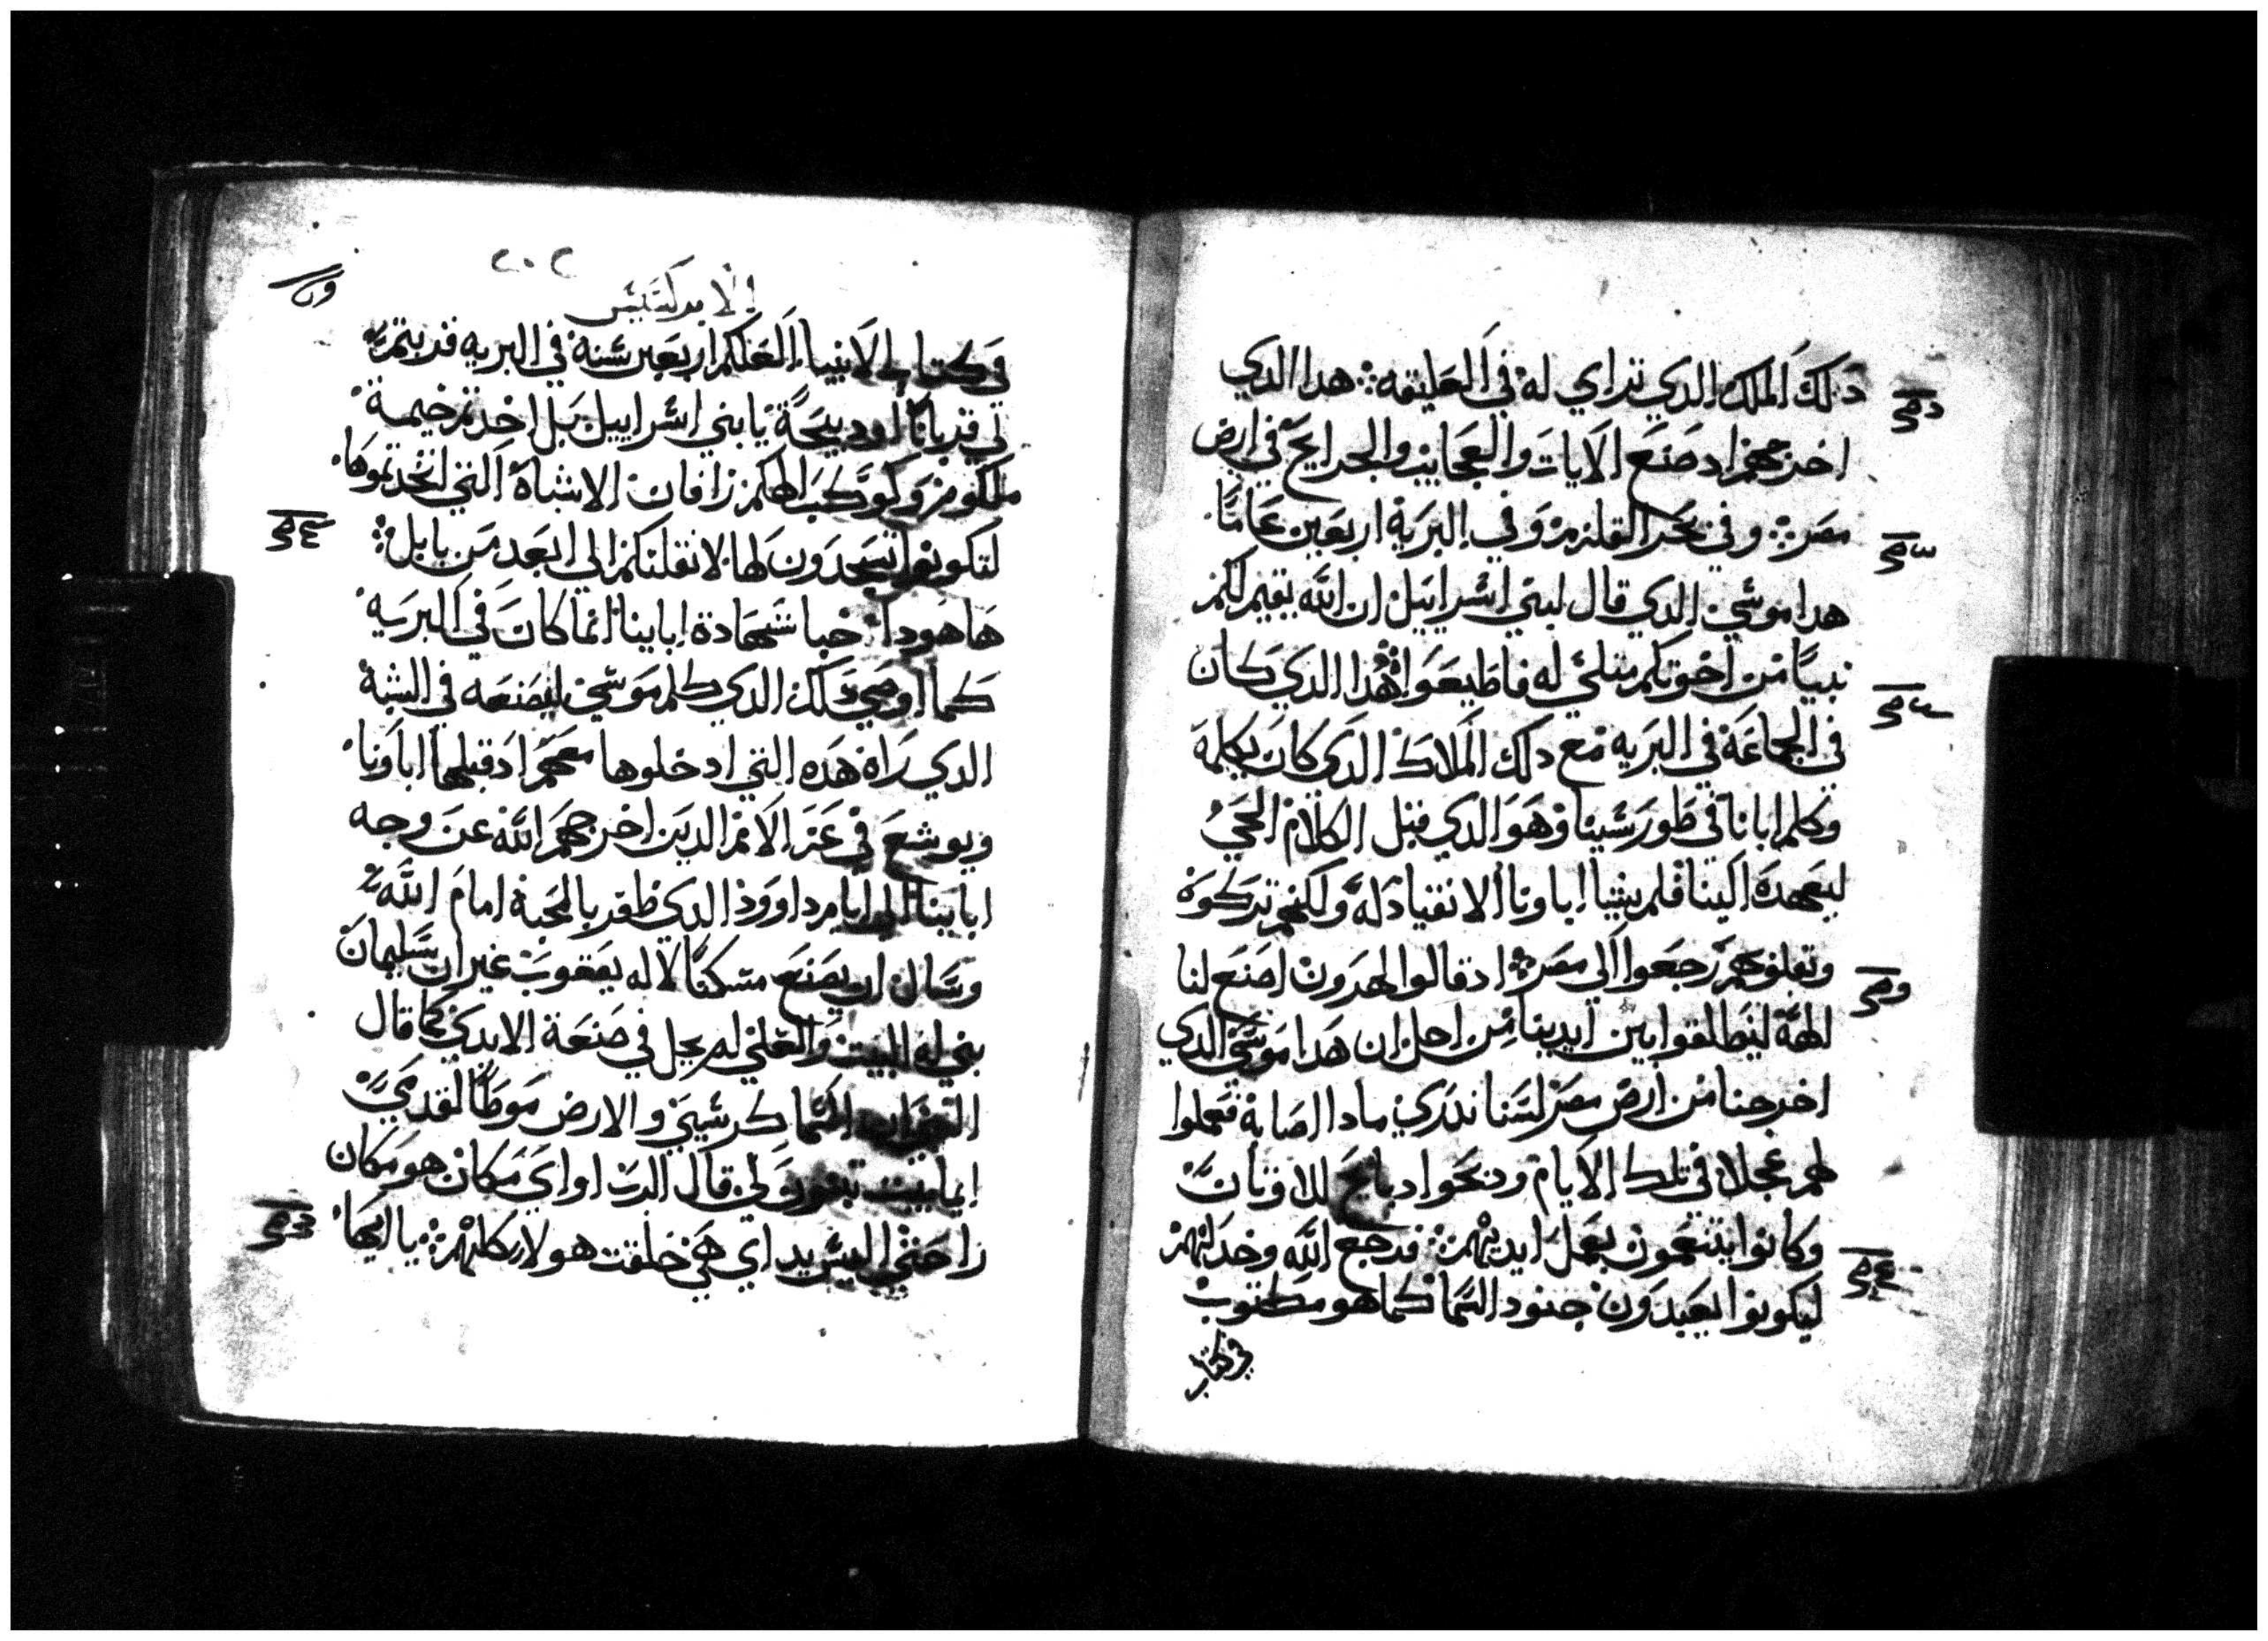 دلك الملك الدي تراي له في العليقه ؞ هدا الدي
اخرجهم اد صنع الايات والعجايب والجرايح في ارض
مصر ؞ وفي بحر القلزم وفي البرية اربعين عاما
هدا موسي الدي قال لبني اسراييل ان الله يقيم لكم
نبيا من اخوتكم متلي له فاطيعوا ؞ هدا الدي كان
في الجماعة في البريه مع دلك الملاك الدي كان يكلمه
وكلم ابانا في طور سينا وهو الدي قبل الكلام الحي
ليعهده الينا فلم يشيا اباونا الانقياد له ولكنهم تركوه
وبقلوبهم رجعوا الي مصر ؞ اد قالوا لهرون اصنع لنا
الهة لينطلقوا بين ايدينا من اجل ان هدا موسي الدي
اخرجنا من ارض مصر لسنا ندري مادا اصابة فعملوا
لهم عجلا في تلك الايام ودبحوا دبايح للاوتان
وكانوا يتنعمون بعمل ايديهم ؞ فرجع الله وخدلهم
ليكونوا يعبدون جنود السما كما هو مكتوب
في كتاب
٢٠٢
الابركسيس
في كتاب الانبيا العلكم اربعين سنة في البريه قربتم
لي قربانا او دبيحة يا بني اسراييل بل اخدتم خيمة
ملكوم وكوكب الهكم رافان الاشباه التي اتخدتموها
لتكونوا تسجدون لها لانقلنكم الي ابعد من بابل ؞
ها هودا خبا شهادة ابايينا انما كان في البريه
كما اوصي دلك الدي كلم موسي ليصنعه في الشبة
الدي راه هده التي ادخلوها معهم اد قبلها اباونا
ويوشع في عز الامم الدين اخرجهم الله عن وجه
ابايينا الي ايام داوود الدي ظفر بالمحبة امام الله
وسال ان يصنع مسكنا لاله يعقوب غير ان سليمان
بني له البيت والعلي لم يحل في صنعة الايدي كما قال
السما كرسيي والارض موطا لقدمي
ايما بيت تبنون لي قال الرب او اي مكان هو مكان
راحتي اليس يداي هي خلقت هولا كلهم ؞ يا ايها